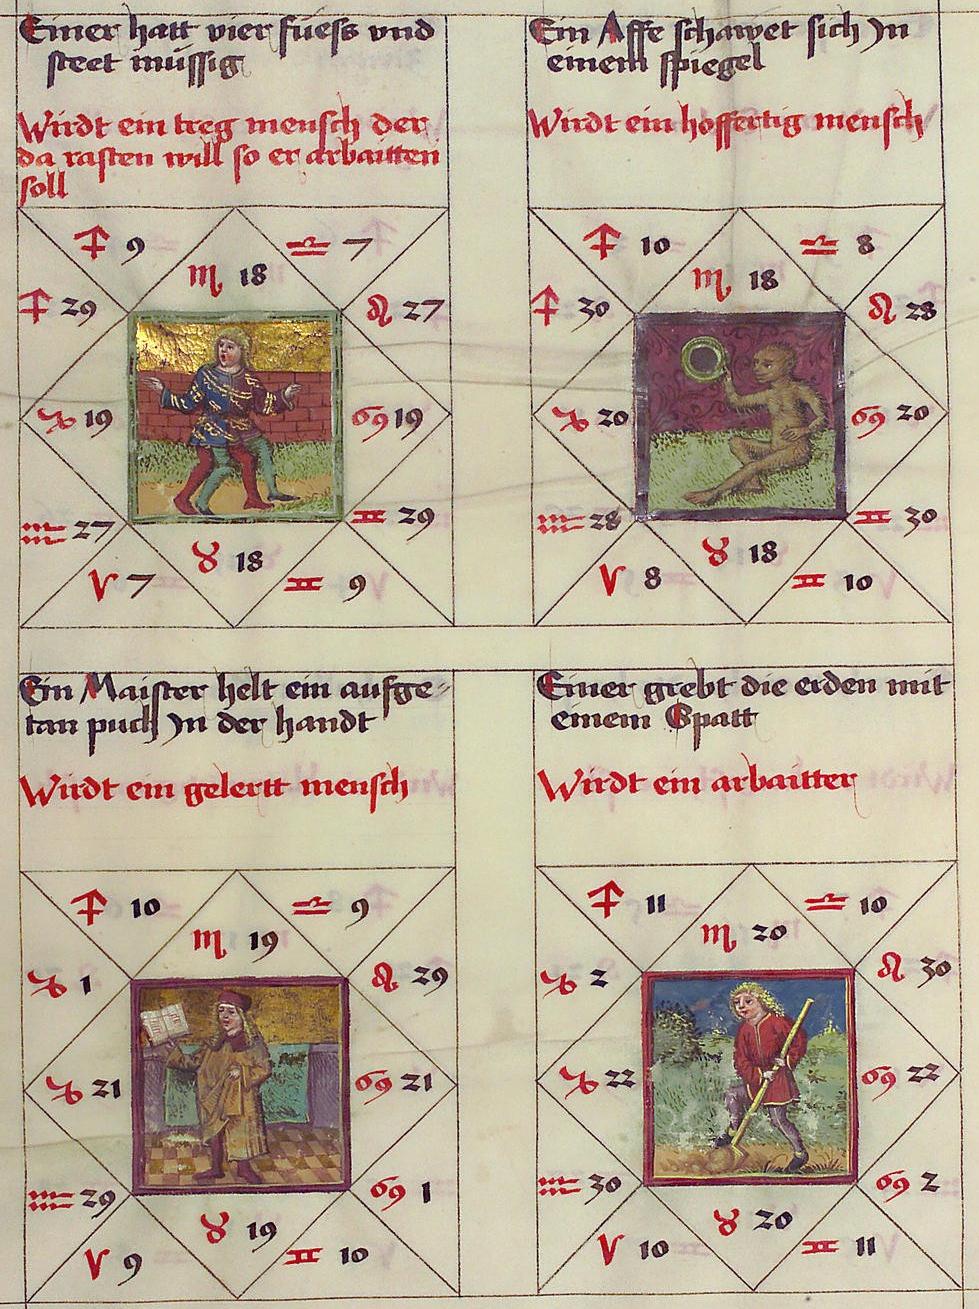 Einer hatt vier fuess vnd
steet müssig
Wirdt ein treg mensch der
da rasten will so er arbaitten
soll
♐ 9
♎ 7
♏ 18
♐ 29
♌ 27
♑ 19
♋ 19
♒ 27
♊ 29
♉ 18
♈ 7
♊ 9
Ein Affe schawet sich Jn
einem spiegel
Wirdt ein hoffertig mensch
♐ 10
♎ 8
♏ 18
♐ 30
♌ 28
♑ 20
♋ 20
♒ 28
♊ 30
♉ 18
♈ 8
♊ 10
Ein Maister helt ein aufge-
tan puch Jn der handt
Wirdt ein gelertt mensch
♐ 10
♎ 9
♏ 19
♑ 1
♌ 29
♑ 21
♋ 21
♒ 29
♋ 1
♉ 19
♈ 9
♊ 10
Einer grebt die erden mit
einem Spatt
Wirdt ein arbaitter
♐ 11
♎ 10
♏ 20
♑ 2
♌ 30
♑ 22
♋ 22
♒ 30
♋ 2
♉ 20
♈ 10
♊ 11